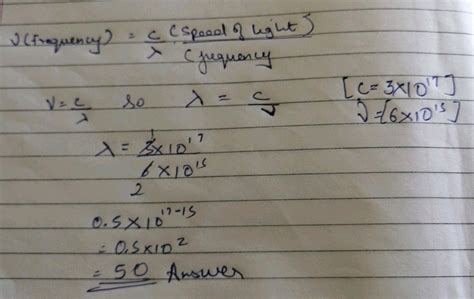 ν(frequency) = c (speed of light)
λ (frequency
ν = c/λ so λ = c/ν [c = 3×10¹⁷]
ν = [6×10¹⁵]
λ = 3×10¹⁷ 1
6×10¹⁵
2
0.5×10¹⁷⁻¹⁵
= 0.5×10²
= 50 Answer